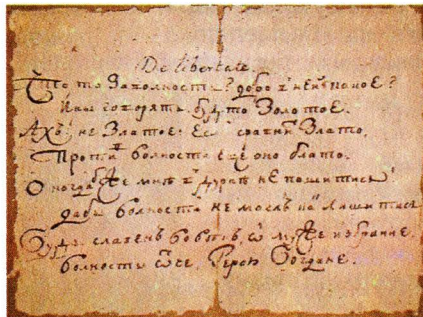 De libertate
Что то За волность? добро в ней какоЕ?
Ины говорятъ, будто ЗолотоЕ.
Ахъ, не Златое: Если сравнит Злато,
Против волности Еще оно блато.
О когда бы же мнѣ в дурнѣ не пошитись
дабы волности не моглъ как лишитись
Будь славенъ вовѣкъ, ѡ муже избранне,
волности ѡтче, Герою Богдане.